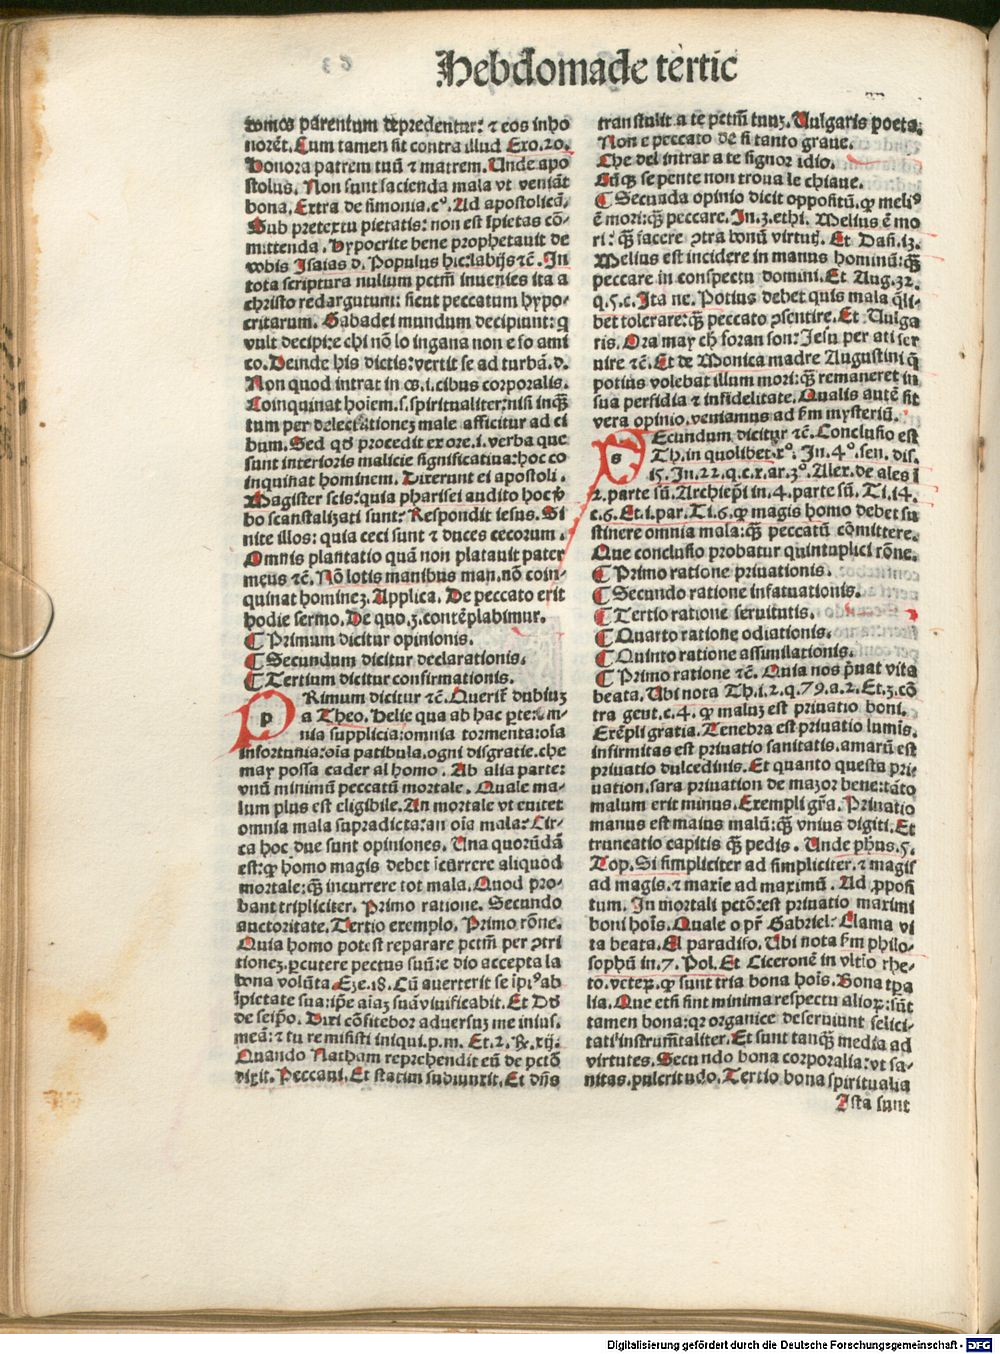 Hebdomade tertie
domos parentum depredentur: ⁊ eos inho
norēt. Cum tamen sit contra illud Exo. 20.
Honora patrem tuū ⁊ matrem. Unde apo
stolus. Non sunt facienda mala vt veniāt
bona. Extra de simonia. c°. Ad apostolicā.
Sub pretextu pietatis: non est īpietas cō-
mittenda. Hypocrite bene prophetauit de
vobis Isaias d. Populus hic: labijs ⁊c̄. In
tota scriptura nullum pctm̄ inuenies ita a
christo redargutum: sicut peccatum hypo-
critarum. Gabadei mundum decipiunt: q
vult decipi: e chi nō lo ingana non e so ami
co. Deinde his dictis: vertit se ad turbā. d.
Non quod intrat in os. i. cibus corporalis.
Coinquinat hoīem. s. spiritualiter: nisi inq̄̄
tum per delectationez male afficitur ad ci
bum. Sed qd̄ procedit ex ore. i. verba que
sunt interioris malicie significatiua: hoc co
inquinat hominem. Dixerunt ei apostoli.
Magister scis: quia pharisei audito hoc v̄
bo scanstalizati sunt: Respondit iesus. Si
nite illos: quia ceci sunt ⁊ duces cecorum.
Omnis plantatio quā non platauit pater
meus ⁊c̄. Nō lotis manibus man. nō coin-
quinat hominez. Applica. De peccato erit
hodie sermo. De quo. 3. contēplabimur.
¶ Primum dicitur opinionis.
¶ Secundum dicitur declarationis.
¶ Tertium dicitur confirmationis.
p Rimum dicitur ⁊c̄. Querit̄ dubiuz
a Theo. Helie qua ab hac parte: om-
nia supplicia: omnia tormenta: oīa
infortunia: oīa patibula. ogni disgratie. che
may possa cader al homo. Ab alia parte:
vnū minimū peccatū mortale. Quale ma-
lum plus est eligibile. An mortale vt euitet
omnia mala supradicta: an oīa mala: Cir-
ca hoc due sunt opiniones. Una quorūdā
est: ꝙ homo magis debet īcurrere aliquod
mortale: q̄̄ incurrere tot mala. Quod pro-
bant tripliciter. Primo ratione. Secundo
auctoritate. Tertio exemplo. Primo rōne.
Quia homo potest reparare pctm̄ per ɔtri
tionez. pcutere pectus suū: e dio accepta la
bona volūta. Eze. 18. Cū auerterit se īpi° ab
īpietate sua: ipe aīaz suā viuificabit. Et Dd
de seip̄o. Dixi cōfitebor aduersuz me inius.
meā: ⁊ tu remisisti iniqui. p. m. Et. 2. R. xij.
Quando Natham reprehendit eū de pctō
dixit. Peccaui. Et statim subiunxit. Et dn̄s
transtulit a te pctm̄ tuuz. Uulgaris poeta.
Non e peccato de si tanto graue.
Che del intrar a te signor idio.
Om̄q̄ se pente non troua le chiaue.
¶ Secunda opinio dicit oppositū. ꝙ meli°
ē mori: q̄̄ peccare. In. 3. ethi. Melius ē mo
ri: q̄̄ facere ɔtra bonū virtutꝭ. Et Dañ. 13.
Melius est incidere in manus hominū: q̄̄
peccare in conspectu domini. Et Aug. 32.
q. 5. c. Ita ne. Potius debet quis mala q̄li-
bet tolerare: q̄̄ peccato ɔsentire. Et Uulga
ris. Ora may ch foran son: Jesu per ati ser
uire ⁊c̄. Et de Monica madre Augustini q̄
potius volebat illum mori: q̄̄ remaneret in
sua perfidia ⁊ infidelitate. Qualis autē sit
vera opinio. veniamus ad sm̄ mysteriū.
s Ecundum dicitur ⁊c̄. Conclusio est
Th. in quolibet. x°. In. 4°. sen. dis.
15. In. 22. q. c. x. ar. 3°. Alex. de ales ī
2. parte sū. Archiep̄i in. 4. parte sū. Ti. 14.
c. 6. Et. i. par. Ti. 6. ꝙ magis homo debet su
stinere omnia mala: q̄̄ peccatū cōmittere.
Que conclusio probatur quintuplici rōne.
¶ Primo ratione priuationis.
¶ Secundo ratione infatuationis.
¶ Tertio ratione seruitutis.
¶ Quarto ratione odiationis.
¶ Quinto ratione assimilationis.
¶ Primo ratione ⁊c̄. Quia nos p̄uat vita
beata. Ubi nota Th. i. 2. q. 79. a. 2. Et. 3. cō
tra gent. c. 4. ꝙ maluz est priuatio boni.
Exēpli gratia. Tenebra est priuatio lumīs.
infirmitas est priuatio sanitatis. amarū est
priuatio dulcedinis. Et quanto questa pri-
uation. sara priuation de mazor bene: tāto
malum erit minus. Exempli gr̄a. Priuatio
manus est maius malū: q̄̄ vnius digiti. Et
truncatio capitis q̄̄ pedis. Unde ph̄us. 5.
Top. Si simpliciter ad simpliciter. ⁊ magis
ad magis. ⁊ maxīe ad maximū. Ad ꝓposi
tum. In mortali pctō: est priuatio maximi
boni hoīs. Quale o pr̄ Gabriel: Clama vi
ta beata. El paradiso. Ubi nota sm̄ philo-
sophū in. 7. Pol. Et Ciceronē in vltīo rhe-
to. veteꝝ. ꝙ sunt tria bona hoīs. Bona tp̄a
lia. Que etsi sint minima respectu alioꝝ: sūt
tamen bona: qꝛ organice deseruiunt felici-
tati instrum̄taliter. Et sunt tanq̄̄ media ad
virtutes. Secundo bona corporalia: vt sa-
nitas. pulcritudo. Tertio bona spiritualia
Ista sunt
Digitalisierung gefördert durch die Deutsche Forschungsgemeinschaft - DFG